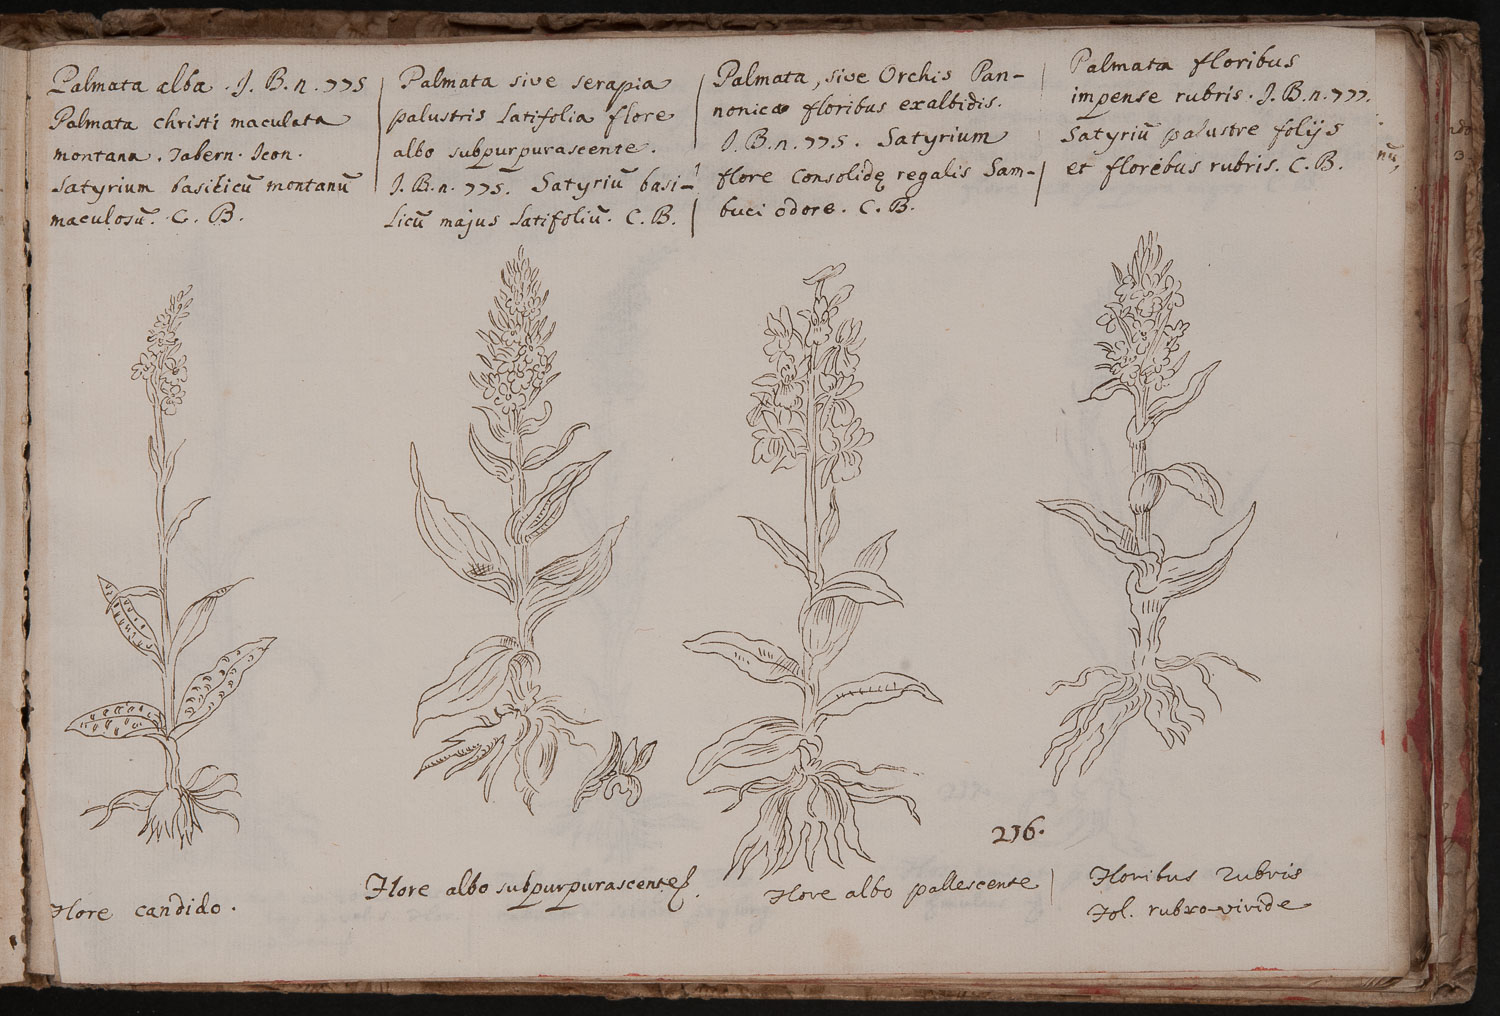 Palmata alba . J. B. n. 775
Palmata christi maculata
montana . Tabern. Icon.
Satyrium basilicū montanū
maculosū. C. B.
Palmata sive serapia
palustris latifolia flore
albo subpurpurascente.
J. B. n. 775. Satyriū basi-
licū majus latifoliū. C. B.
Palmata, sive Orchis Pan-
nonica floribus exalbidis.
J. B. n. 775. Satyrium
flore Consolidę regalis Sam-
buci odore. C. B.
Palmata floribus
impense rubris. J. B. n. 777.
Satyriū palustre folijs
et floribus rubris. C. B.
nū,
Flore candido.
Flore albo subpurpurascente.
Flore albo pallescente
236.
Floribus rubris
Fol. rubro-viride